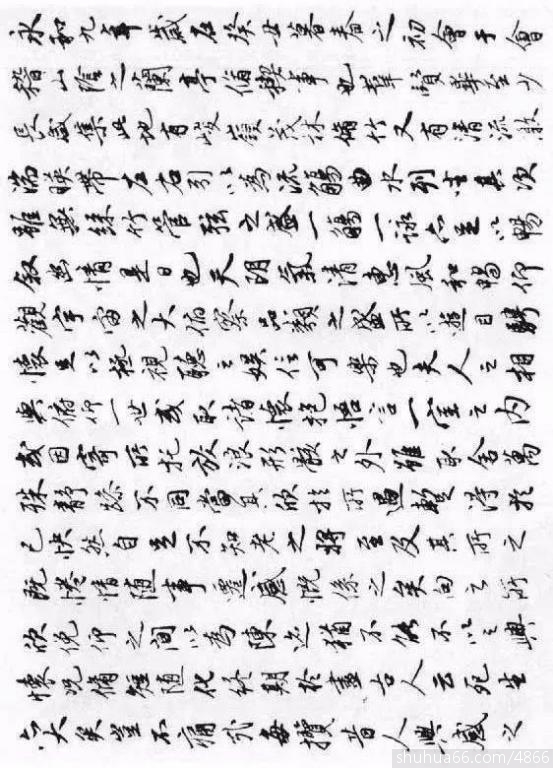 永和九年歲在癸丑暮春之初會于會
稽山陰之蘭亭脩禊事也羣賢畢至少
長咸集此地有峻領茂林脩竹又有清流激
湍暎帶左右引以為流觴曲水列坐其次
雖無絲竹管弦之盛一觴一詠亦足以暢
敘幽情是日也天朗氣清惠風和暢仰
觀宇宙之大俯察品類之盛所以遊目騁
懷足以極視聽之娛信可樂也夫人之相
與俯仰一世或取諸懷抱悟言一室之內
或因寄所托放浪形骸之外雖取舍萬
殊靜躁不同當其欣於所遇蹔得於
己快然自足不知老之將至及其所之
既惓情隨事遷感慨係之矣向之所
欣俛仰之間以為陳迹猶不能不以之興
懷況脩短隨化終期於盡古人云死生
亦大矣豈不痛哉每攬昔人興感之
shuhua66.com/4866